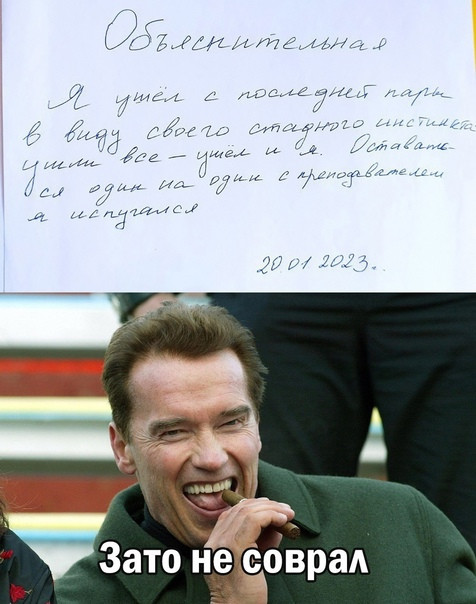 Объяснительная
Я ушёл с последней пары
в виду своего стадного инстинкта
ушли все – ушёл и я. Оставать-
ся один на один с преподавателем
я испугался
20.01 2023г.
Зато не соврал